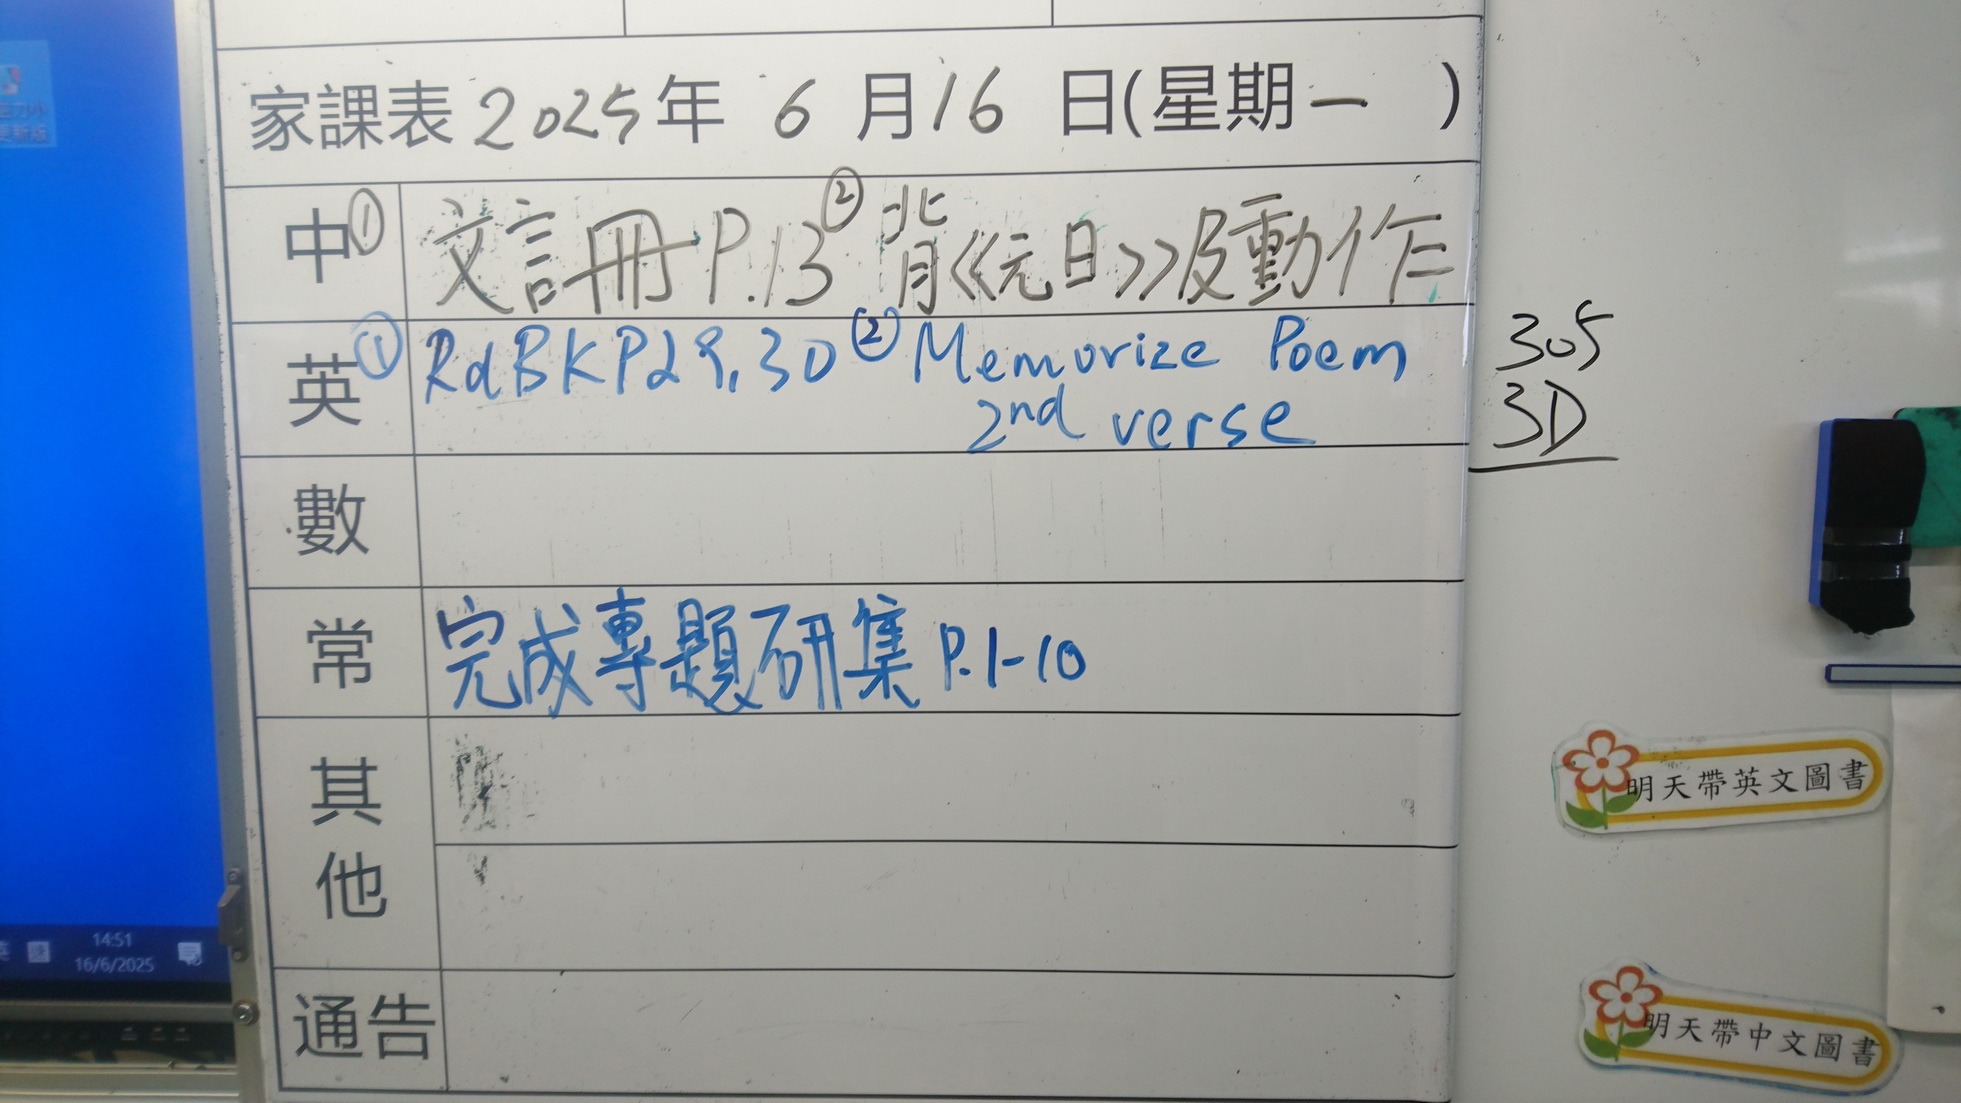 家課表 2025年 6月16日(星期一)
中 ① 文言冊 P.13 ② 背《元日》及動作
英 ① Rd BK P29,30 ② Memorize Poem
2nd verse
305
3D
數
常 完成專題研集 P.1-10
其他
通告
明天帶英文圖書
明天帶中文圖書
更新版
14:51
16/6/2025